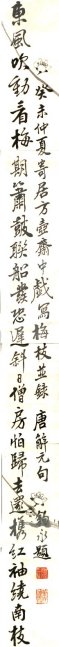 東風吹動看梅期簫鼓聯船發恐遲斜日僧房怕歸去還携紅袖繞南枝
癸未仲夏寄居方壺齋中戲寫梅枝並錄唐解元句
永題